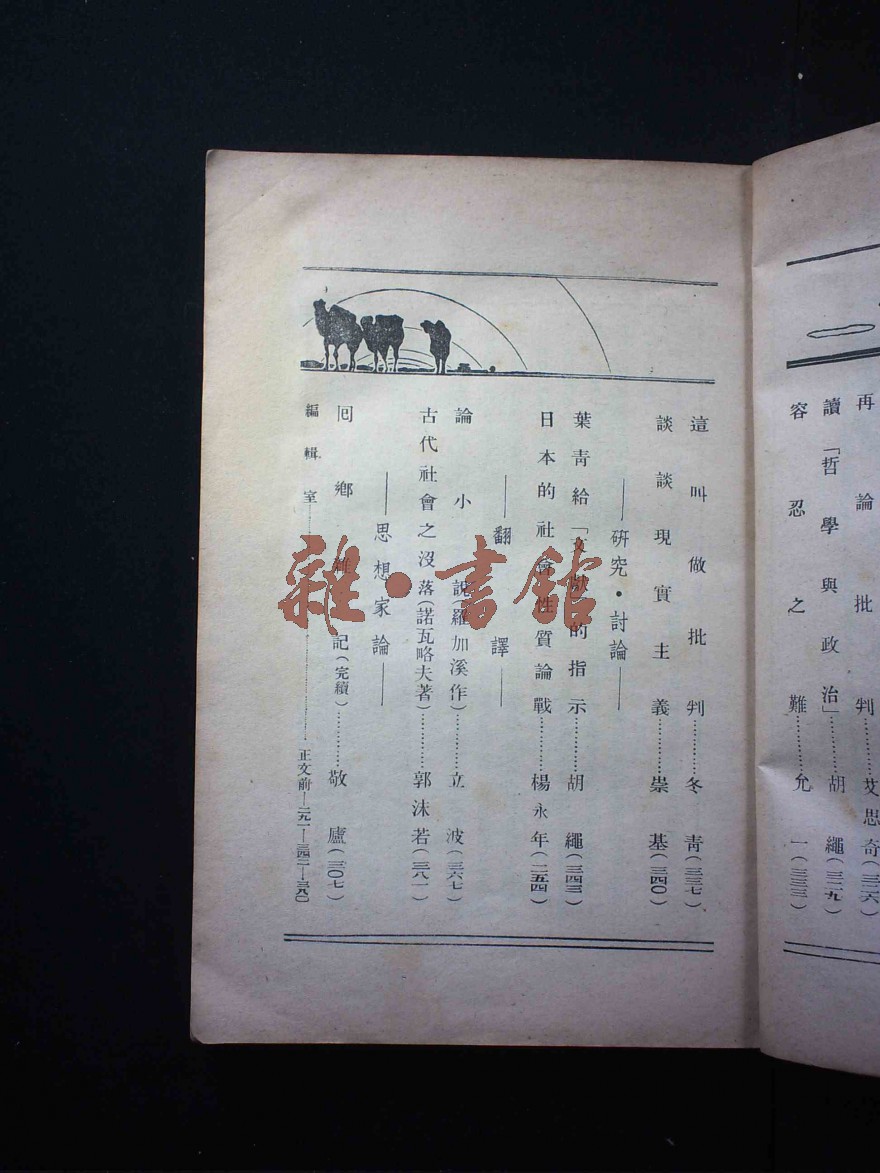 再論批判…………艾思奇(三二六)
讀「哲學與政治」…………胡繩(三二九)
容忍之難…………允一(三三三)
這叫做批判…………冬青(三三七)
談談現實主義…………崇基(三四〇)
——研究·討論——
葉青給「文獻」的指示…………胡繩(三四三)
日本的社會性質論戰…………楊永年(三五四)
——翻譯——
論小說(羅加溪作)…………立波(三六七)
古代社會之沒落(諾瓦略夫著)…………郭沫若(三八一)
——思想家論——
囘鄉雜記(完續)…………敬廬(三〇七)
編輯室…………正文前—二九一—三四二—三八〇
雜·書館